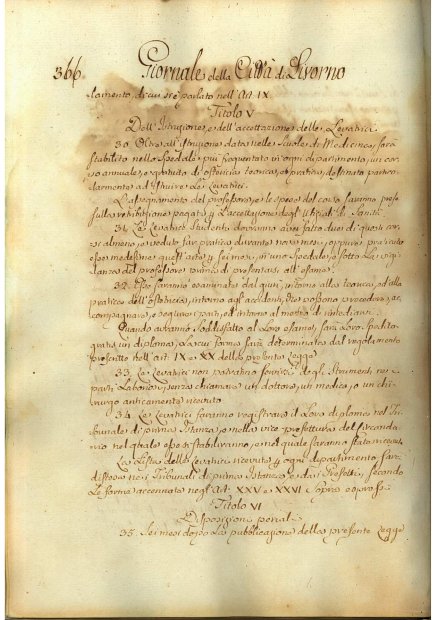 366 Giornale della Città di Livorno
stamento, di cui si è parlato nell'Art. IX
Titolo V
Dell'Istruzione, e dell'accettazione delle Levatrici
30. Oltre all'istruzione data nelle scuole di Medicina, sarà
stabilito nello Spedale più frequentato in ogni dipartimento, un cor-
so annuale, e gratuito di ostetricia teorica, e pratica, destinata partico-
larmente ad Istruire Le Levatrici.
L'assegnamento del professore, e le spese del corso saranno prese
sulla retribuzione pagata per L'accettazione degli Ufiziali di Sanità.
31. Le Levatrici Studenti dovranno aver fatto due di questi cor-
si almeno, e veduto far pratica durante nove mesi, oppure praticato
esse medesime quest'arte per sei mesi, in uno Spedale, o sotto La vigi-
lanza del professore prima di presentarsi all'esame.
32. Esse saranno esaminate dai giurì, intorno alla teorica, ed alla
pratica dell'ostetricia, intorno agli accidenti, che possono precedere, ac-
compagnare, e seguire i parti, ed intorno al modo di rimediarvi.
Quando avranno soddisfatto al Loro esame, sarà Loro spedito
gratis un diploma, La cui forma sarà determinata dal regolamento
prescritto nell'art. IX e XX della presente Legge
33. Le Levatrici non potranno servirsi degli Strumenti ne i
parti Laboriosi, senza chiamare un dottore, un medico, o un chi-
rurgo anticamente ricevuto.
34. Le Levatrici faranno registrare il Loro diploma nel Tri-
bunale di prima Istanza, e nella vice-prefettura del circonda-
rio nel quale esse si stabiliranno, e nel quale saranno state ricevute.
La Lista delle Levatrici ricevute per ogni dipartimento sarà
distesa ne i Tribunali di prima Istanza, e da i Prefetti, secondo
Le forme accennate negli Art. XXV e XXVI sopra espressi
Titolo VI
Disposizioni penali
35. Sei mesi dopo La pubblicazione della presente Legge